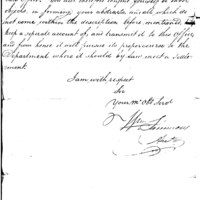 objects, in forming your abstracts and all, which do
not come, within the description before mentioned
keep a separate account of, and transmit it to this Office,
and from hence it will pursue its proper course to the
Department where it should by law meet a settle-
ment.
I am with respect
Sir
Your Mo Obt Servt
Wm Simmons